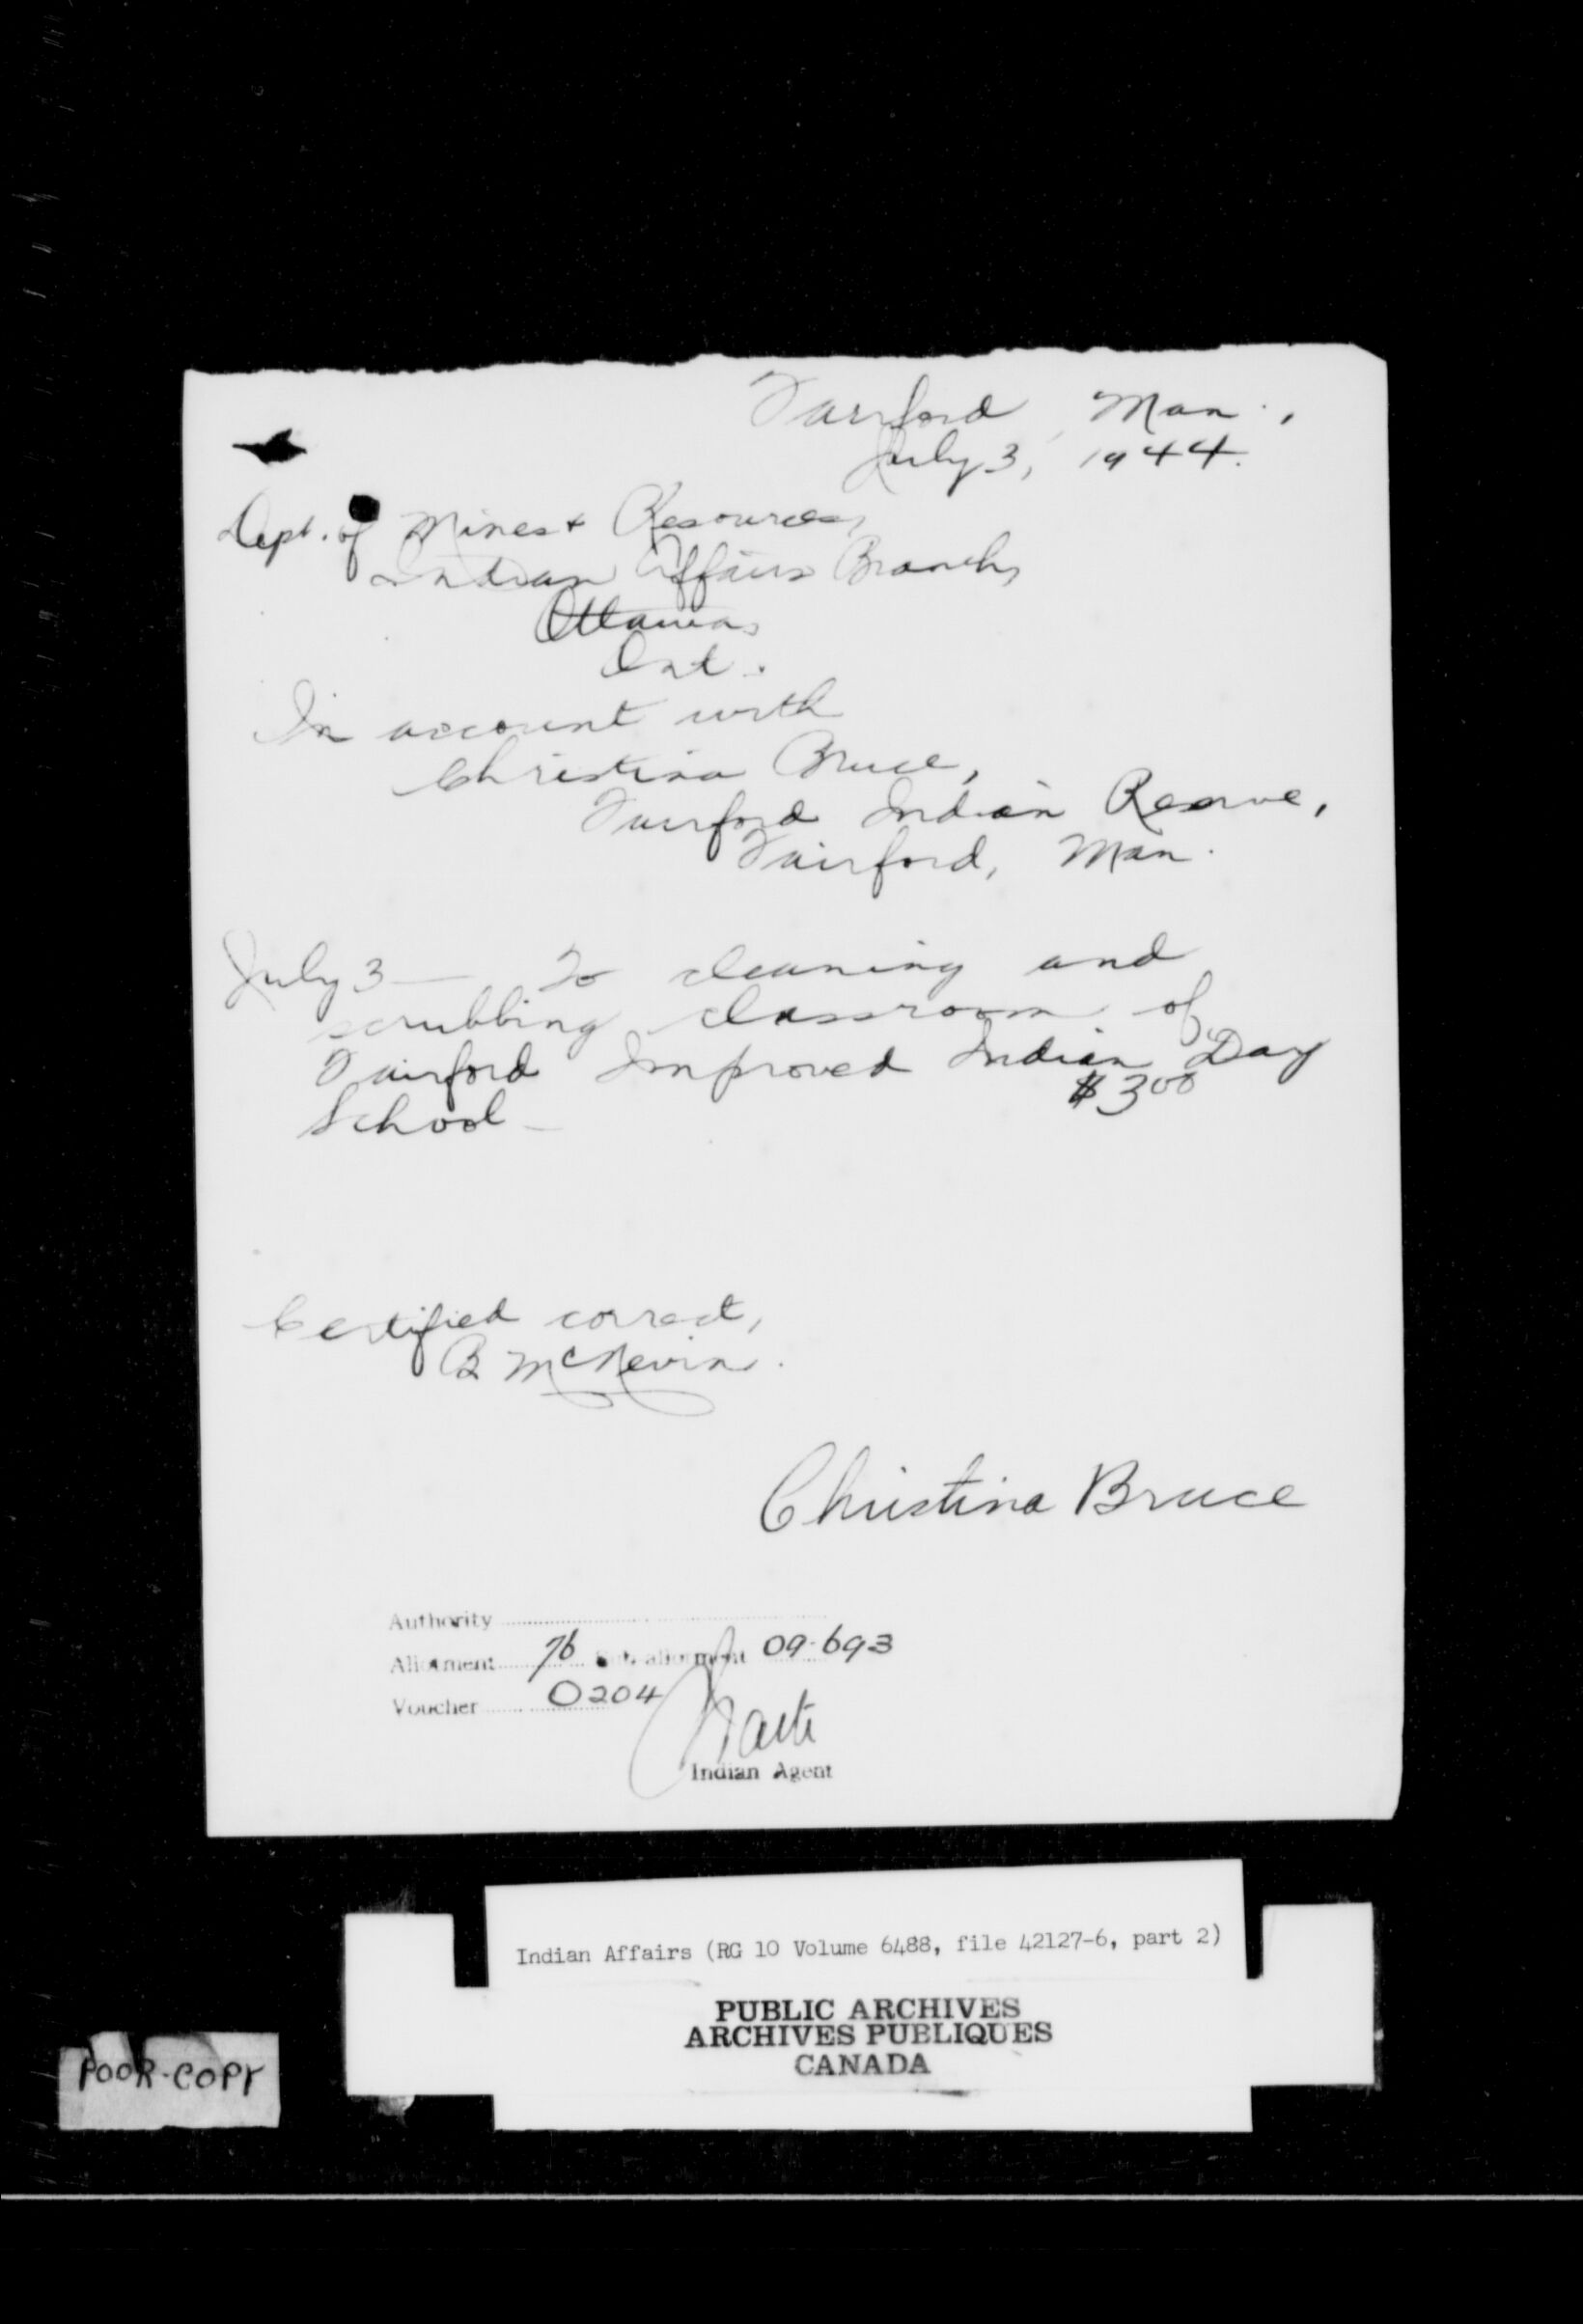 Fairford Man.,
July 3, 1944.
Dept. of Mines & Resources,
Indian Affairs Branch,
Ottawa,
Ont.
In account with
Christina Bruce,
Fairford Indian Reserve,
Fairford, Man.
July 3 — To cleaning and
scrubbing classroom of
Fairford Improved Indian Day
School — $3 00
Certified correct,
B McNevin.
Christina Bruce
Authority
Allotment 76 Sub-allotment 09-693
Voucher 0204
Indian Agent
Indian Affairs (RG 10 Volume 6488, file 42127-6, part 2)
PUBLIC ARCHIVES
ARCHIVES PUBLIQUES
CANADA
POOR-COPY